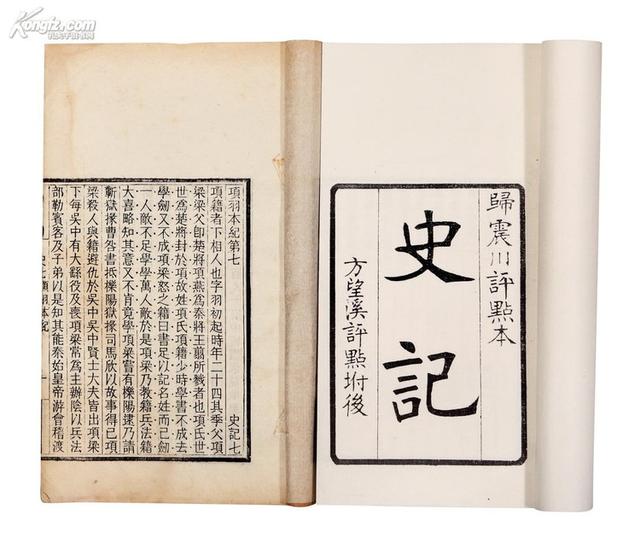 Kongfz.com
歸震川評點本
史記
方望溪評點坿後
項羽本紀第七 史記七
項籍者下相人也字羽初起時年二十四其季父項
梁梁父卽楚將項燕為秦將王翦所戮者也項氏世
世為楚將封於項故姓項氏項籍少時學書不成去
學劒又不成項梁怒之籍曰書足以記名姓而已劒
一人敵不足學學萬人敵於是項梁乃敎籍兵法籍
大喜略知其意又不肯竟學項梁嘗有櫟陽逮乃請
蘄獄掾曹咎書抵櫟陽獄掾司馬欣以故事得已項
梁殺人與籍避仇於吳中吳中賢士大夫皆出項梁
下每吳中有大繇役及喪項梁常為主辦陰以兵法
部勒賓客及子弟以是知其能秦始皇帝游會稽渡
項羽本紀